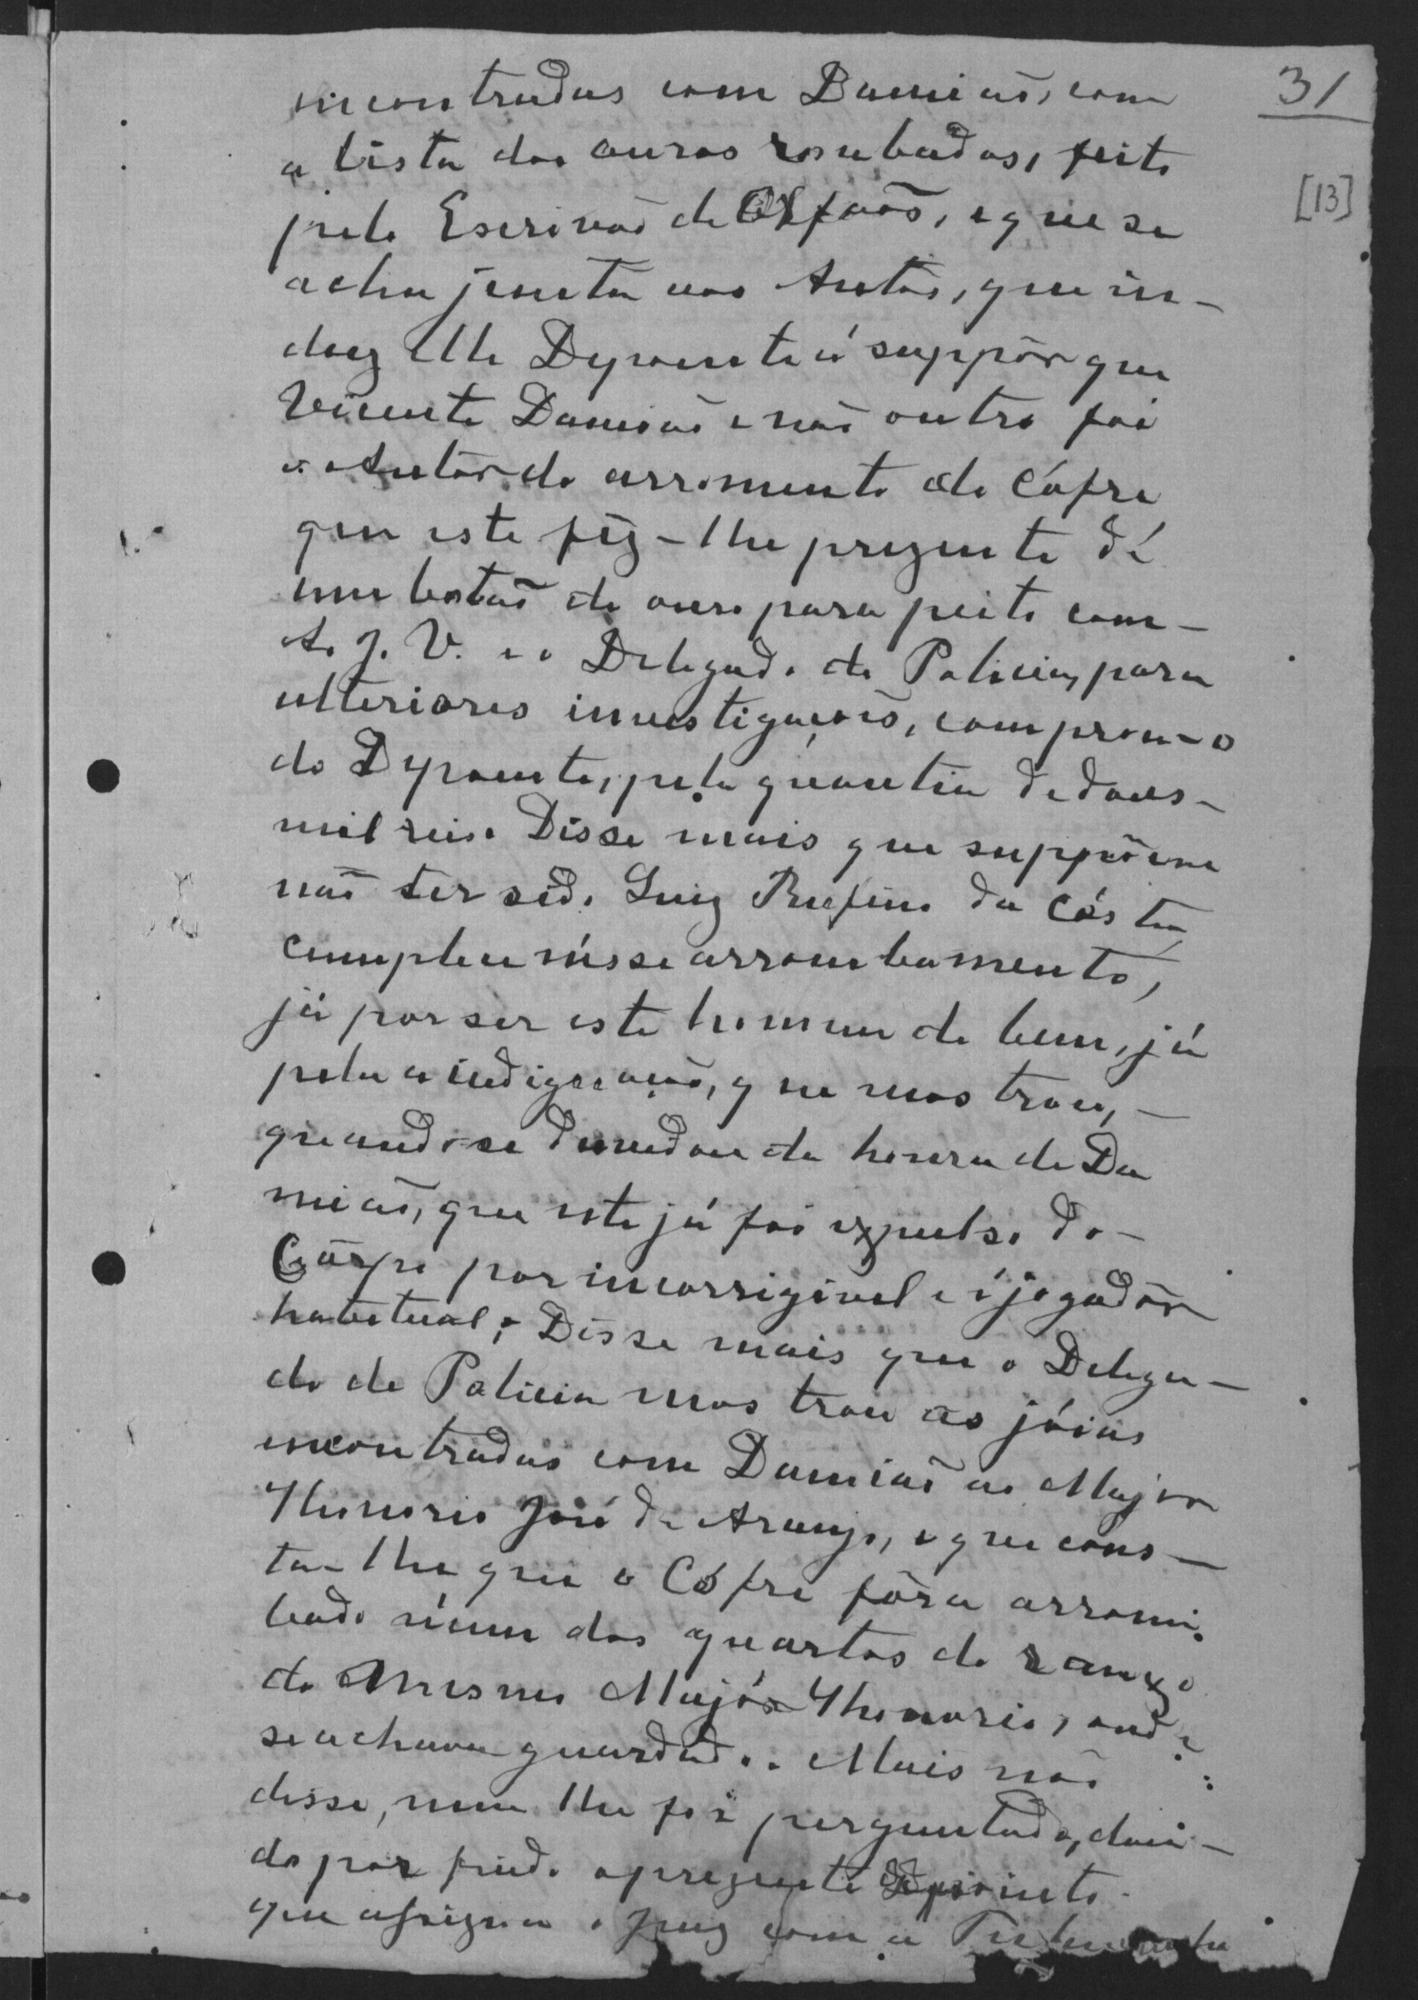 31
[13]
incontradas com Damião, com
a lista dos ouros roubados, feita
pelo Escrivão de Orfãos, e que se
acha junta aos Autos, que in-
duz elle Depoente á suppôr que
Vicente Damião e não outro foi
o Autor do arromento do Cófre
que este fêz-lhe prezente dé
um botão de ouro para peito com-
o Delegado de Policia, para
ulteriores investigações, comprou-o
do Depoente, pela quantia de dous-
mil reis. Disse mais que suppõem
não ter sido Luiz Rufino da Cósta
cumplice nésse arrombamento,
já por ser este homem de bem, já
pela a indignação, que mostrou,-
quando se duvidou da honra de Da
mião, que este já foi expulso do-
Côrpo por incorrigivel e é jogadôr
habitual; Disse mais que o Delega-
do de Policia mostrou as jóias
incontradas com Damião ao Major
Honorio José de Araujo, e que cons-
ta-lhe que o Cófre fôra arrom-
bado n'um dos quartos do ranxo
do Mesmo Majór Honorio, onde
se achava guardado. Mais não
disse, nem lhe foi perguntado, dan-
do por findo o prezente depoimento
que assigna o Juiz com a Testemunha